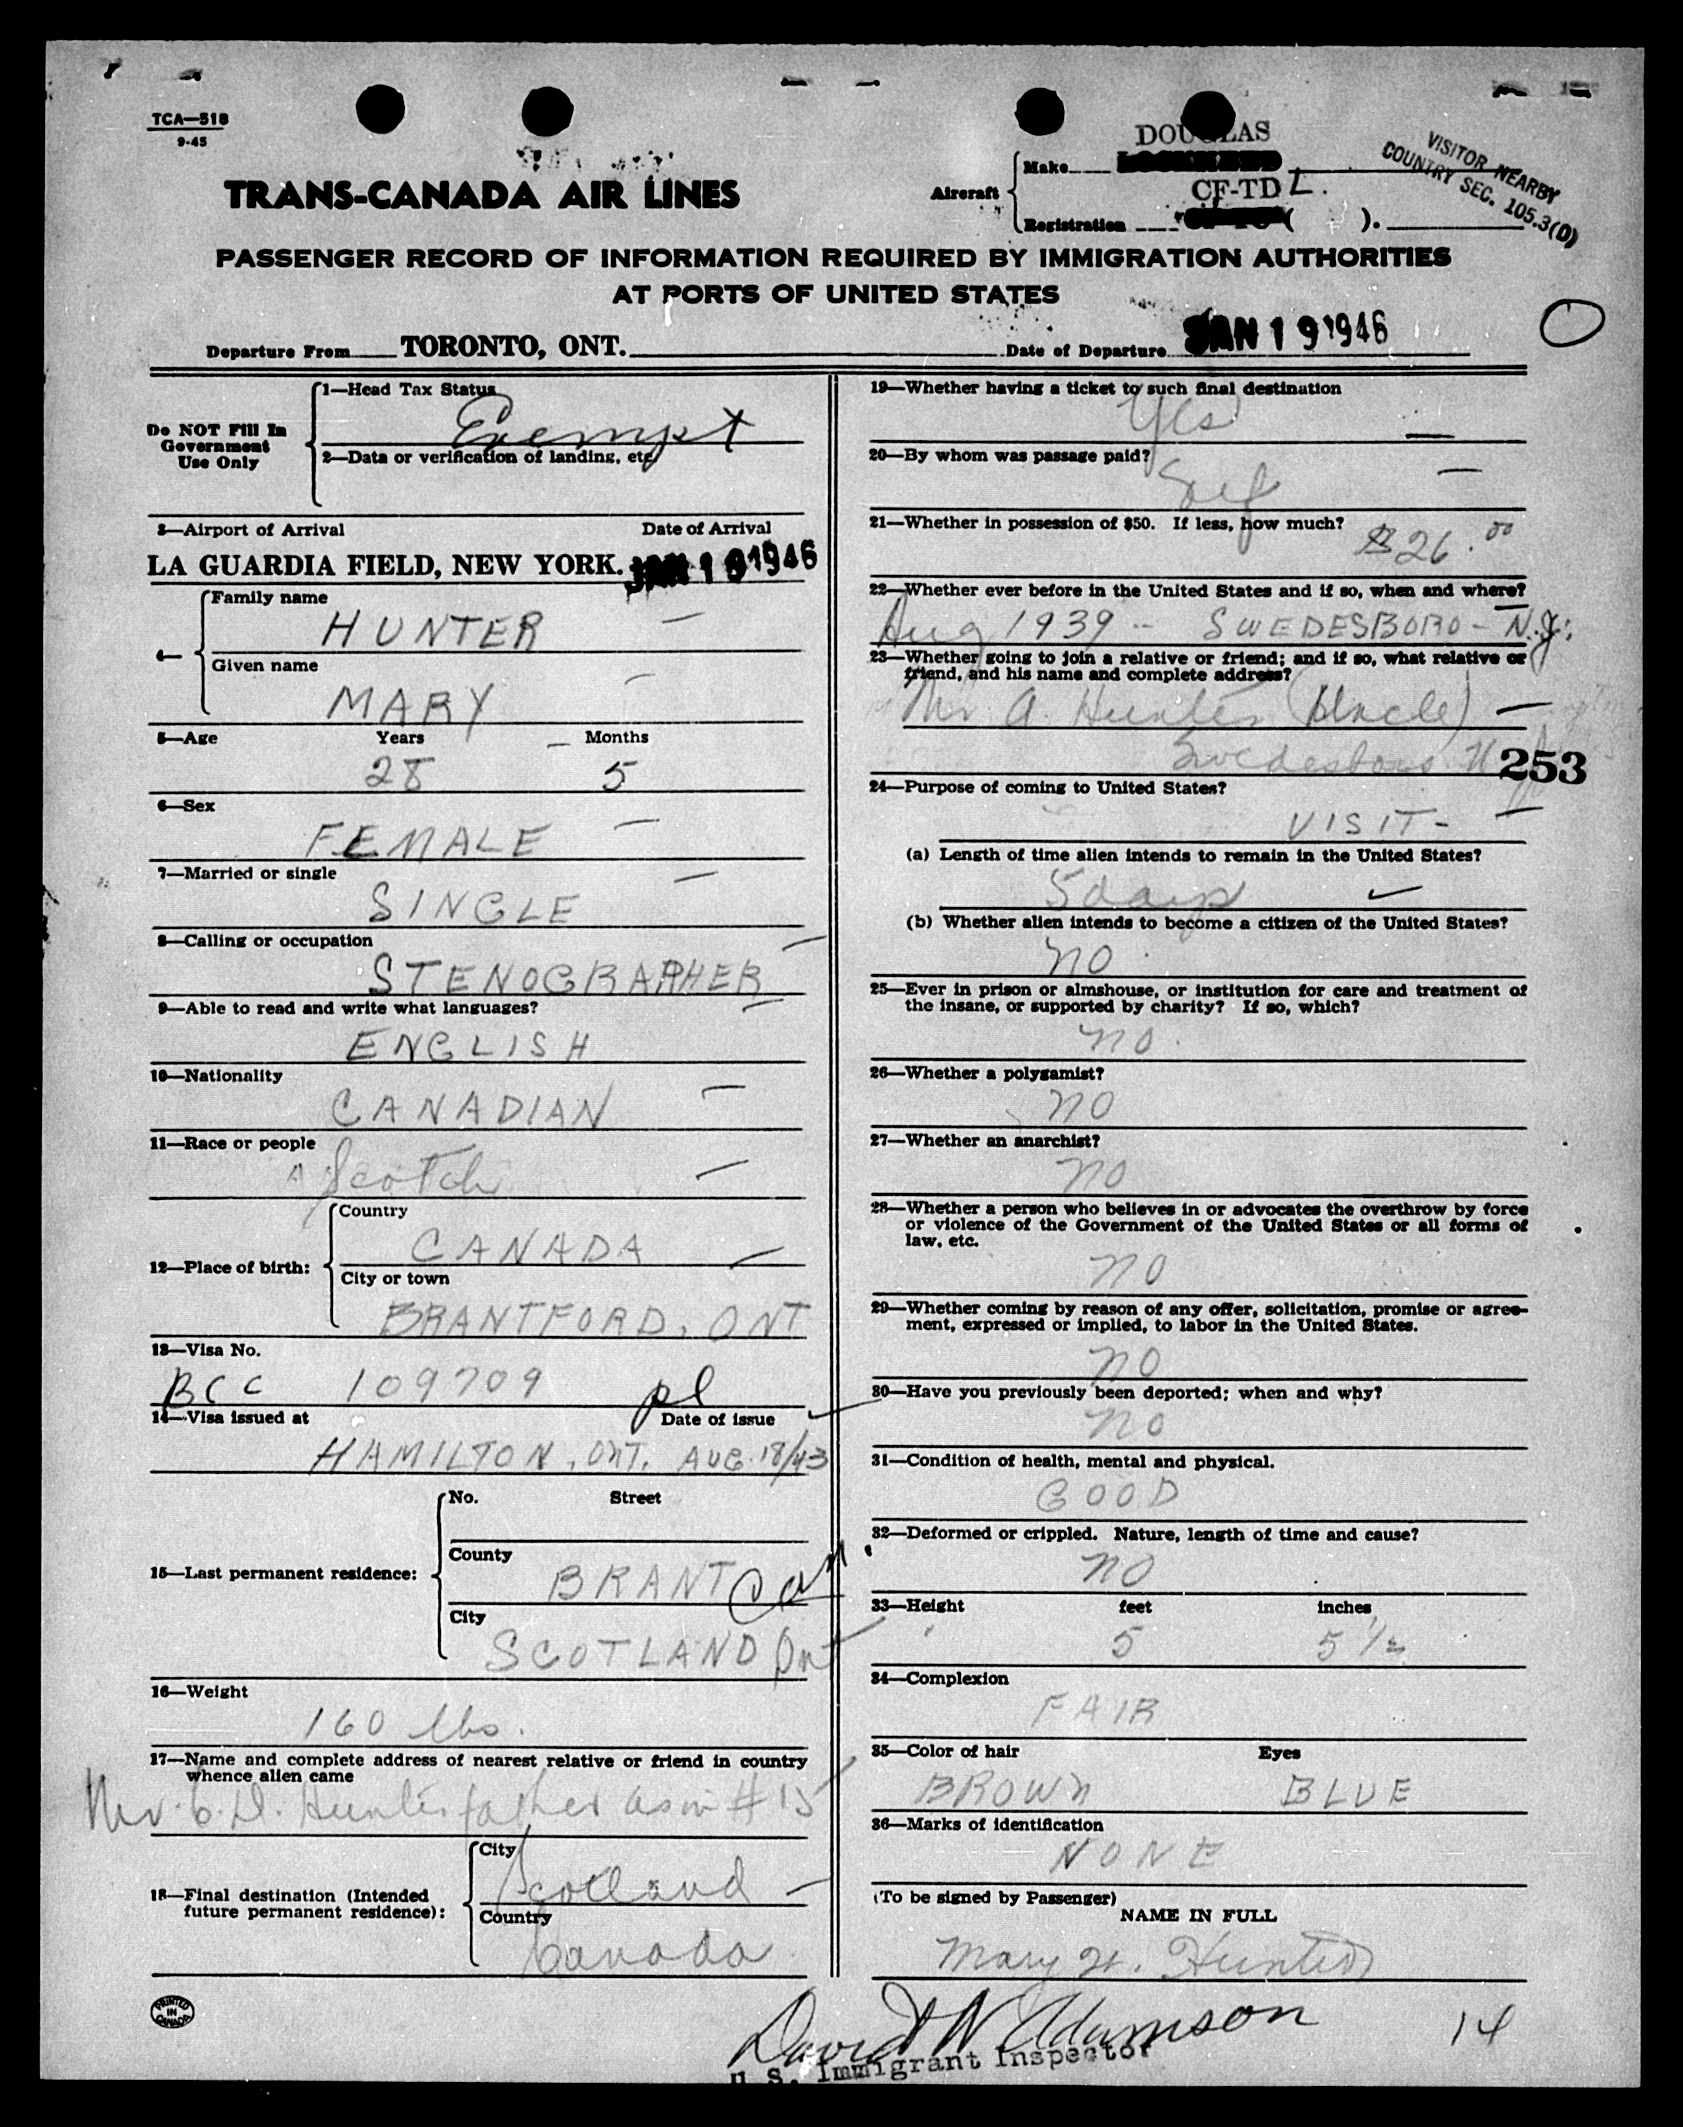 TCA—518
9-45
DOUGLAS
Aircraft
Make
CF-TDL.
Registration ( ).
VISITOR NEARBY
COUNTRY SEC. 105.3(D)
TRANS-CANADA AIR LINES
PASSENGER RECORD OF INFORMATION REQUIRED BY IMMIGRATION AUTHORITIES
AT PORTS OF UNITED STATES
Departure From TORONTO, ONT. Date of Departure JAN 19 1946
Do NOT Fill In
Government
Use Only
1—Head Tax Status
Exempt
2—Data or verification of landing, etc.
3—Airport of Arrival Date of Arrival
LA GUARDIA FIELD, NEW YORK. JAN 19 1946
4—
Family name
HUNTER
Given name
MARY
5—Age Years Months
28 5
6—Sex
FEMALE
7—Married or single
SINGLE
8—Calling or occupation
STENOGRAPHER
9—Able to read and write what languages?
ENGLISH
10—Nationality
CANADIAN
11—Race or people
Scotch
12—Place of birth:
Country
CANADA
City or town
BRANTFORD, ONT
13—Visa No.
BCC 109709 pl
14—Visa issued at Date of issue
HAMILTON, ONT. AUG. 18/43
15—Last permanent residence:
No. Street
County
BRANT Can
City
SCOTLAND Ont
16—Weight
160 lbs.
17—Name and complete address of nearest relative or friend in country
whence alien came
Mr. C. D. Hunter father as in # 15
18—Final destination (Intended
future permanent residence):
City
Scotland
Country
Canada
PRINTED
IN
CANADA
19—Whether having a ticket to such final destination
Yes
20—By whom was passage paid?
Self
21—Whether in possession of $50. If less, how much?
$26.00
22—Whether ever before in the United States and if so, when and where?
Aug 1939 -- SWEDESBORO - N.J.
23—Whether going to join a relative or friend; and if so, what relative or
friend, and his name and complete address?
Mr. A. Hunter (Uncle)
Swedesboro N
253
24—Purpose of coming to United States?
VISIT -
(a) Length of time alien intends to remain in the United States?
5 days
(b) Whether alien intends to become a citizen of the United States?
no
25—Ever in prison or almshouse, or institution for care and treatment of
the insane, or supported by charity? If so, which?
no.
26—Whether a polygamist?
no
27—Whether an anarchist?
no
28—Whether a person who believes in or advocates the overthrow by force
or violence of the Government of the United States or all forms of
law, etc.
no
29—Whether coming by reason of any offer, solicitation, promise or agree-
ment, expressed or implied, to labor in the United States.
no
30—Have you previously been deported; when and why?
no
31—Condition of health, mental and physical.
GOOD
32—Deformed or crippled. Nature, length of time and cause?
no
33—Height feet inches
5 5 1/2
34—Complexion
FAIR
35—Color of hair Eyes
BROWN BLUE
36—Marks of identification
NONE
(To be signed by Passenger)
NAME IN FULL
Mary H. Hunter
David W Adamson
U.S. Immigrant Inspector
14